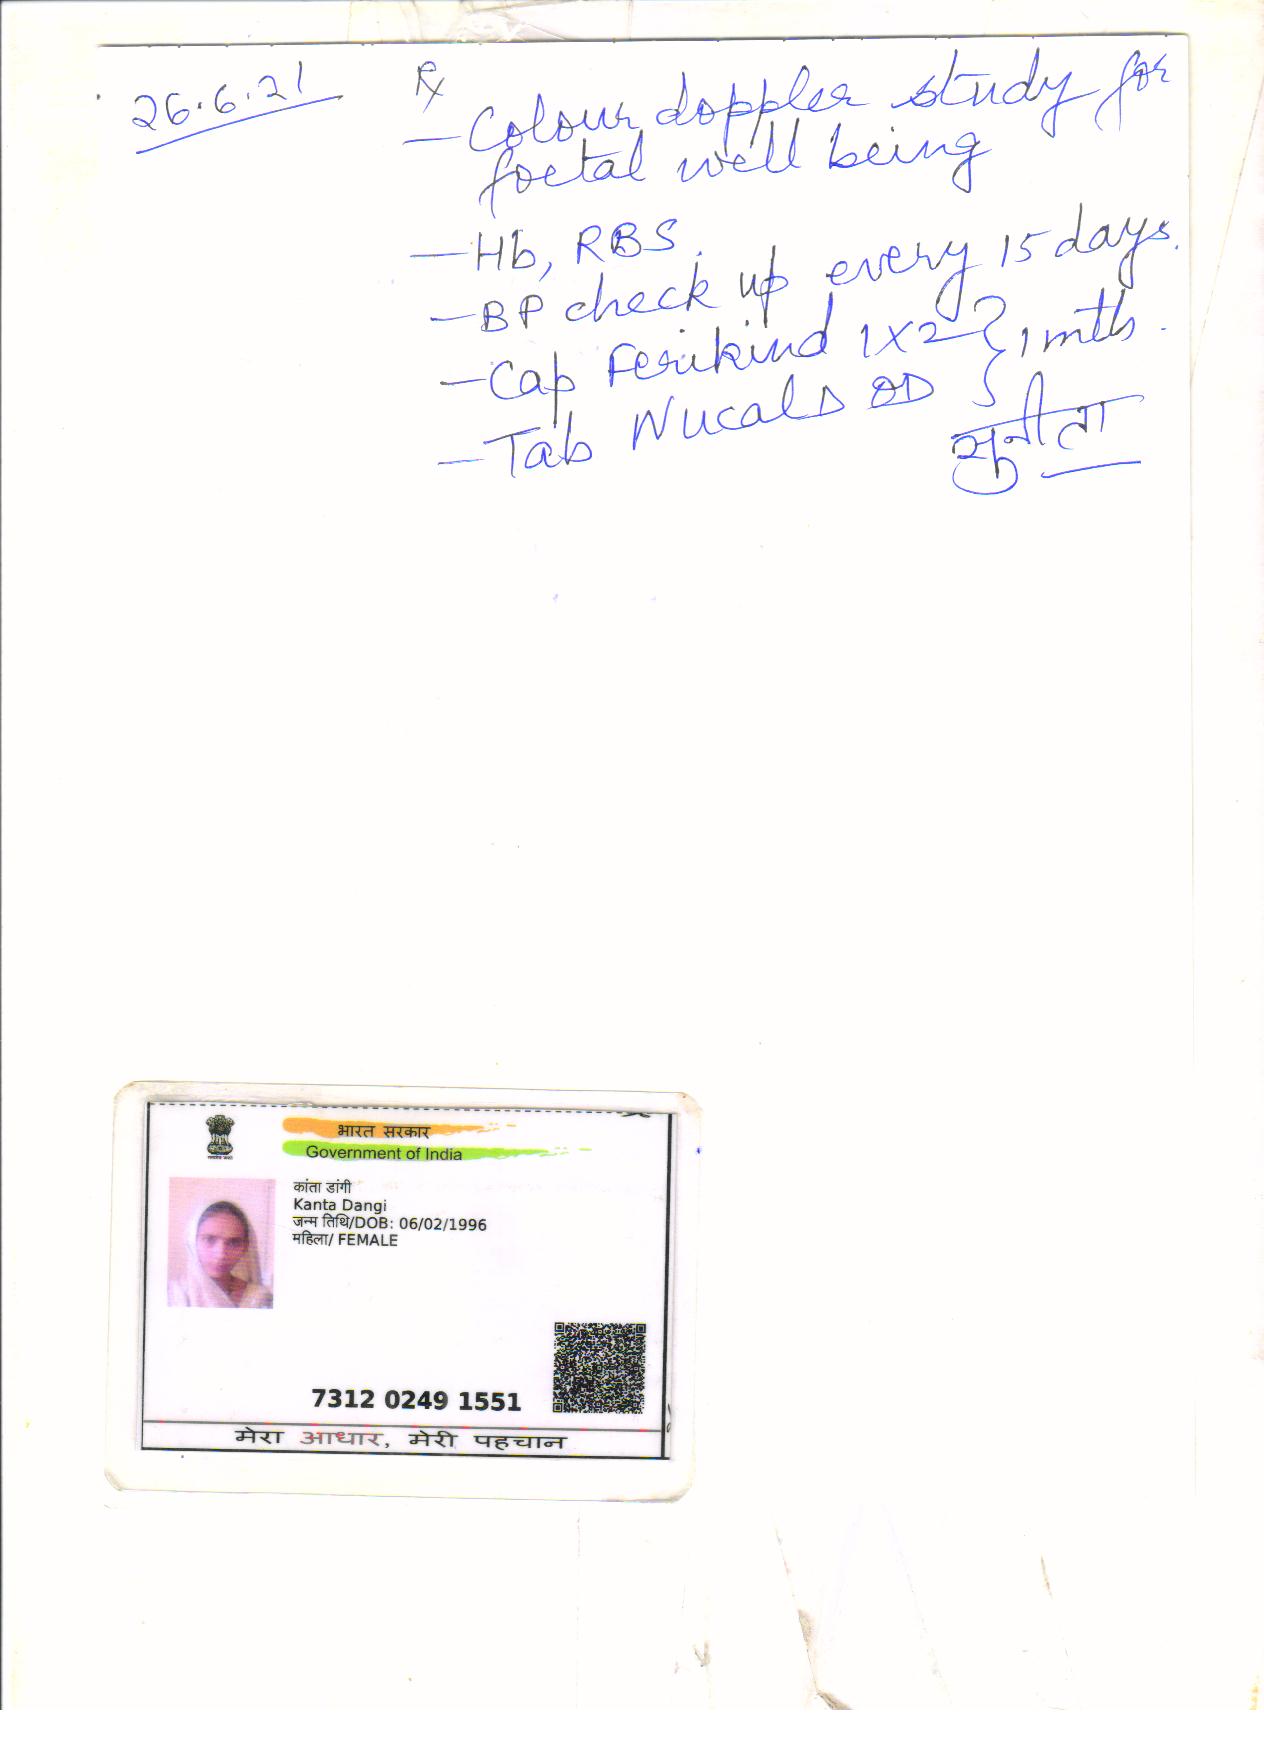 26.6.21
Rx
- Colour doppler study for
foetal well being
- Hb, RBS.
- BP check up every 15 days.
- Cap Ferikind 1x2 } 1 mth.
- Tab Nucal D OD
सुनीता
भारत सरकार
Government of India
कांता डांगी
Kanta Dangi
जन्म तिथि/DOB: 06/02/1996
महिला/ FEMALE
7312 0249 1551
मेरा आधार, मेरी पहचान